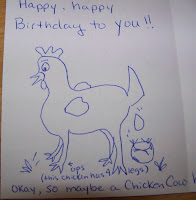 Happy, happy
Birthday to you!!
ops
(this chicken has 4 legs)
Okay, so maybe a Chicken Cow